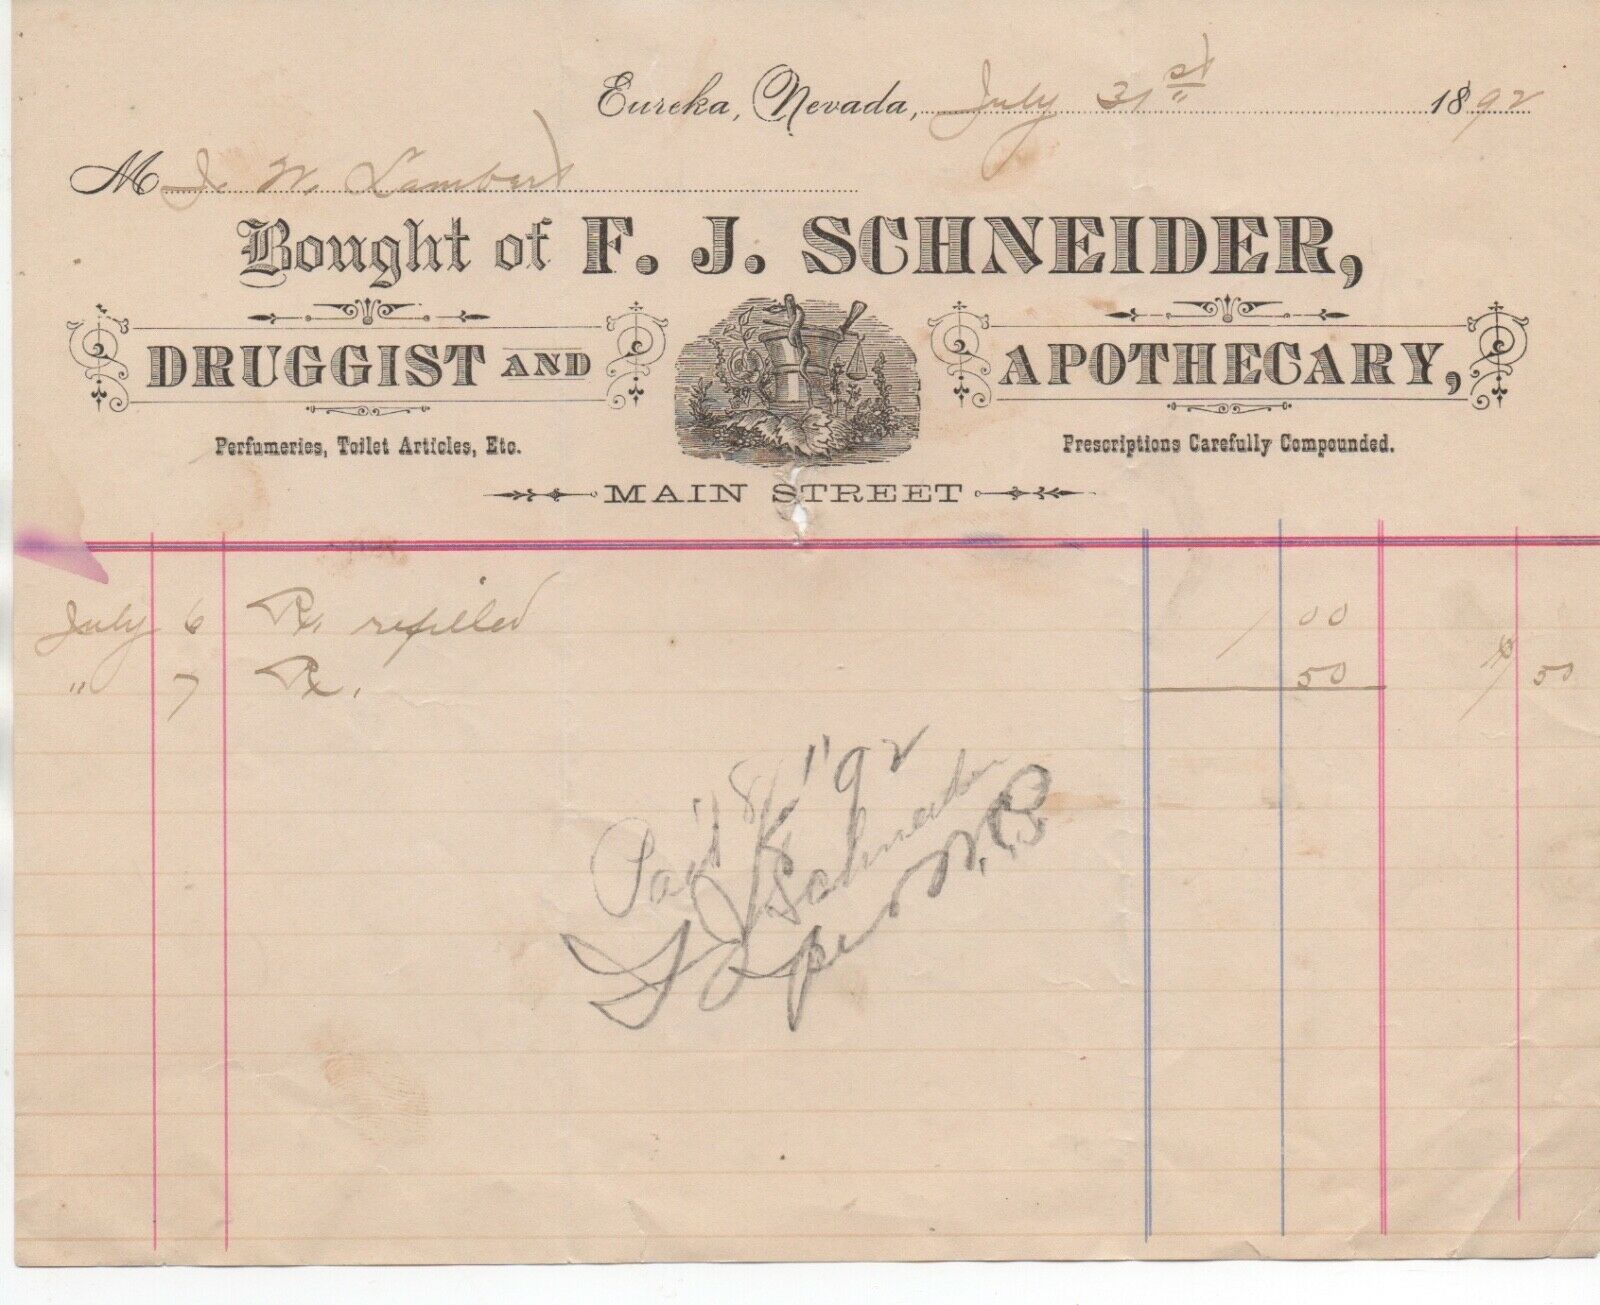 Eureka, Nevada, July 31st 1892
M J. W. Lambert
Bought of F. J. SCHNEIDER,
DRUGGIST AND APOTHECARY,
Perfumeries, Toilet Articles, Etc. Prescriptions Carefully Compounded.
MAIN STREET
July 6 Rx. refilled 1 00
" 7 Rx. 50 1 50
Paid 8/1" 92
F J Schneider
per